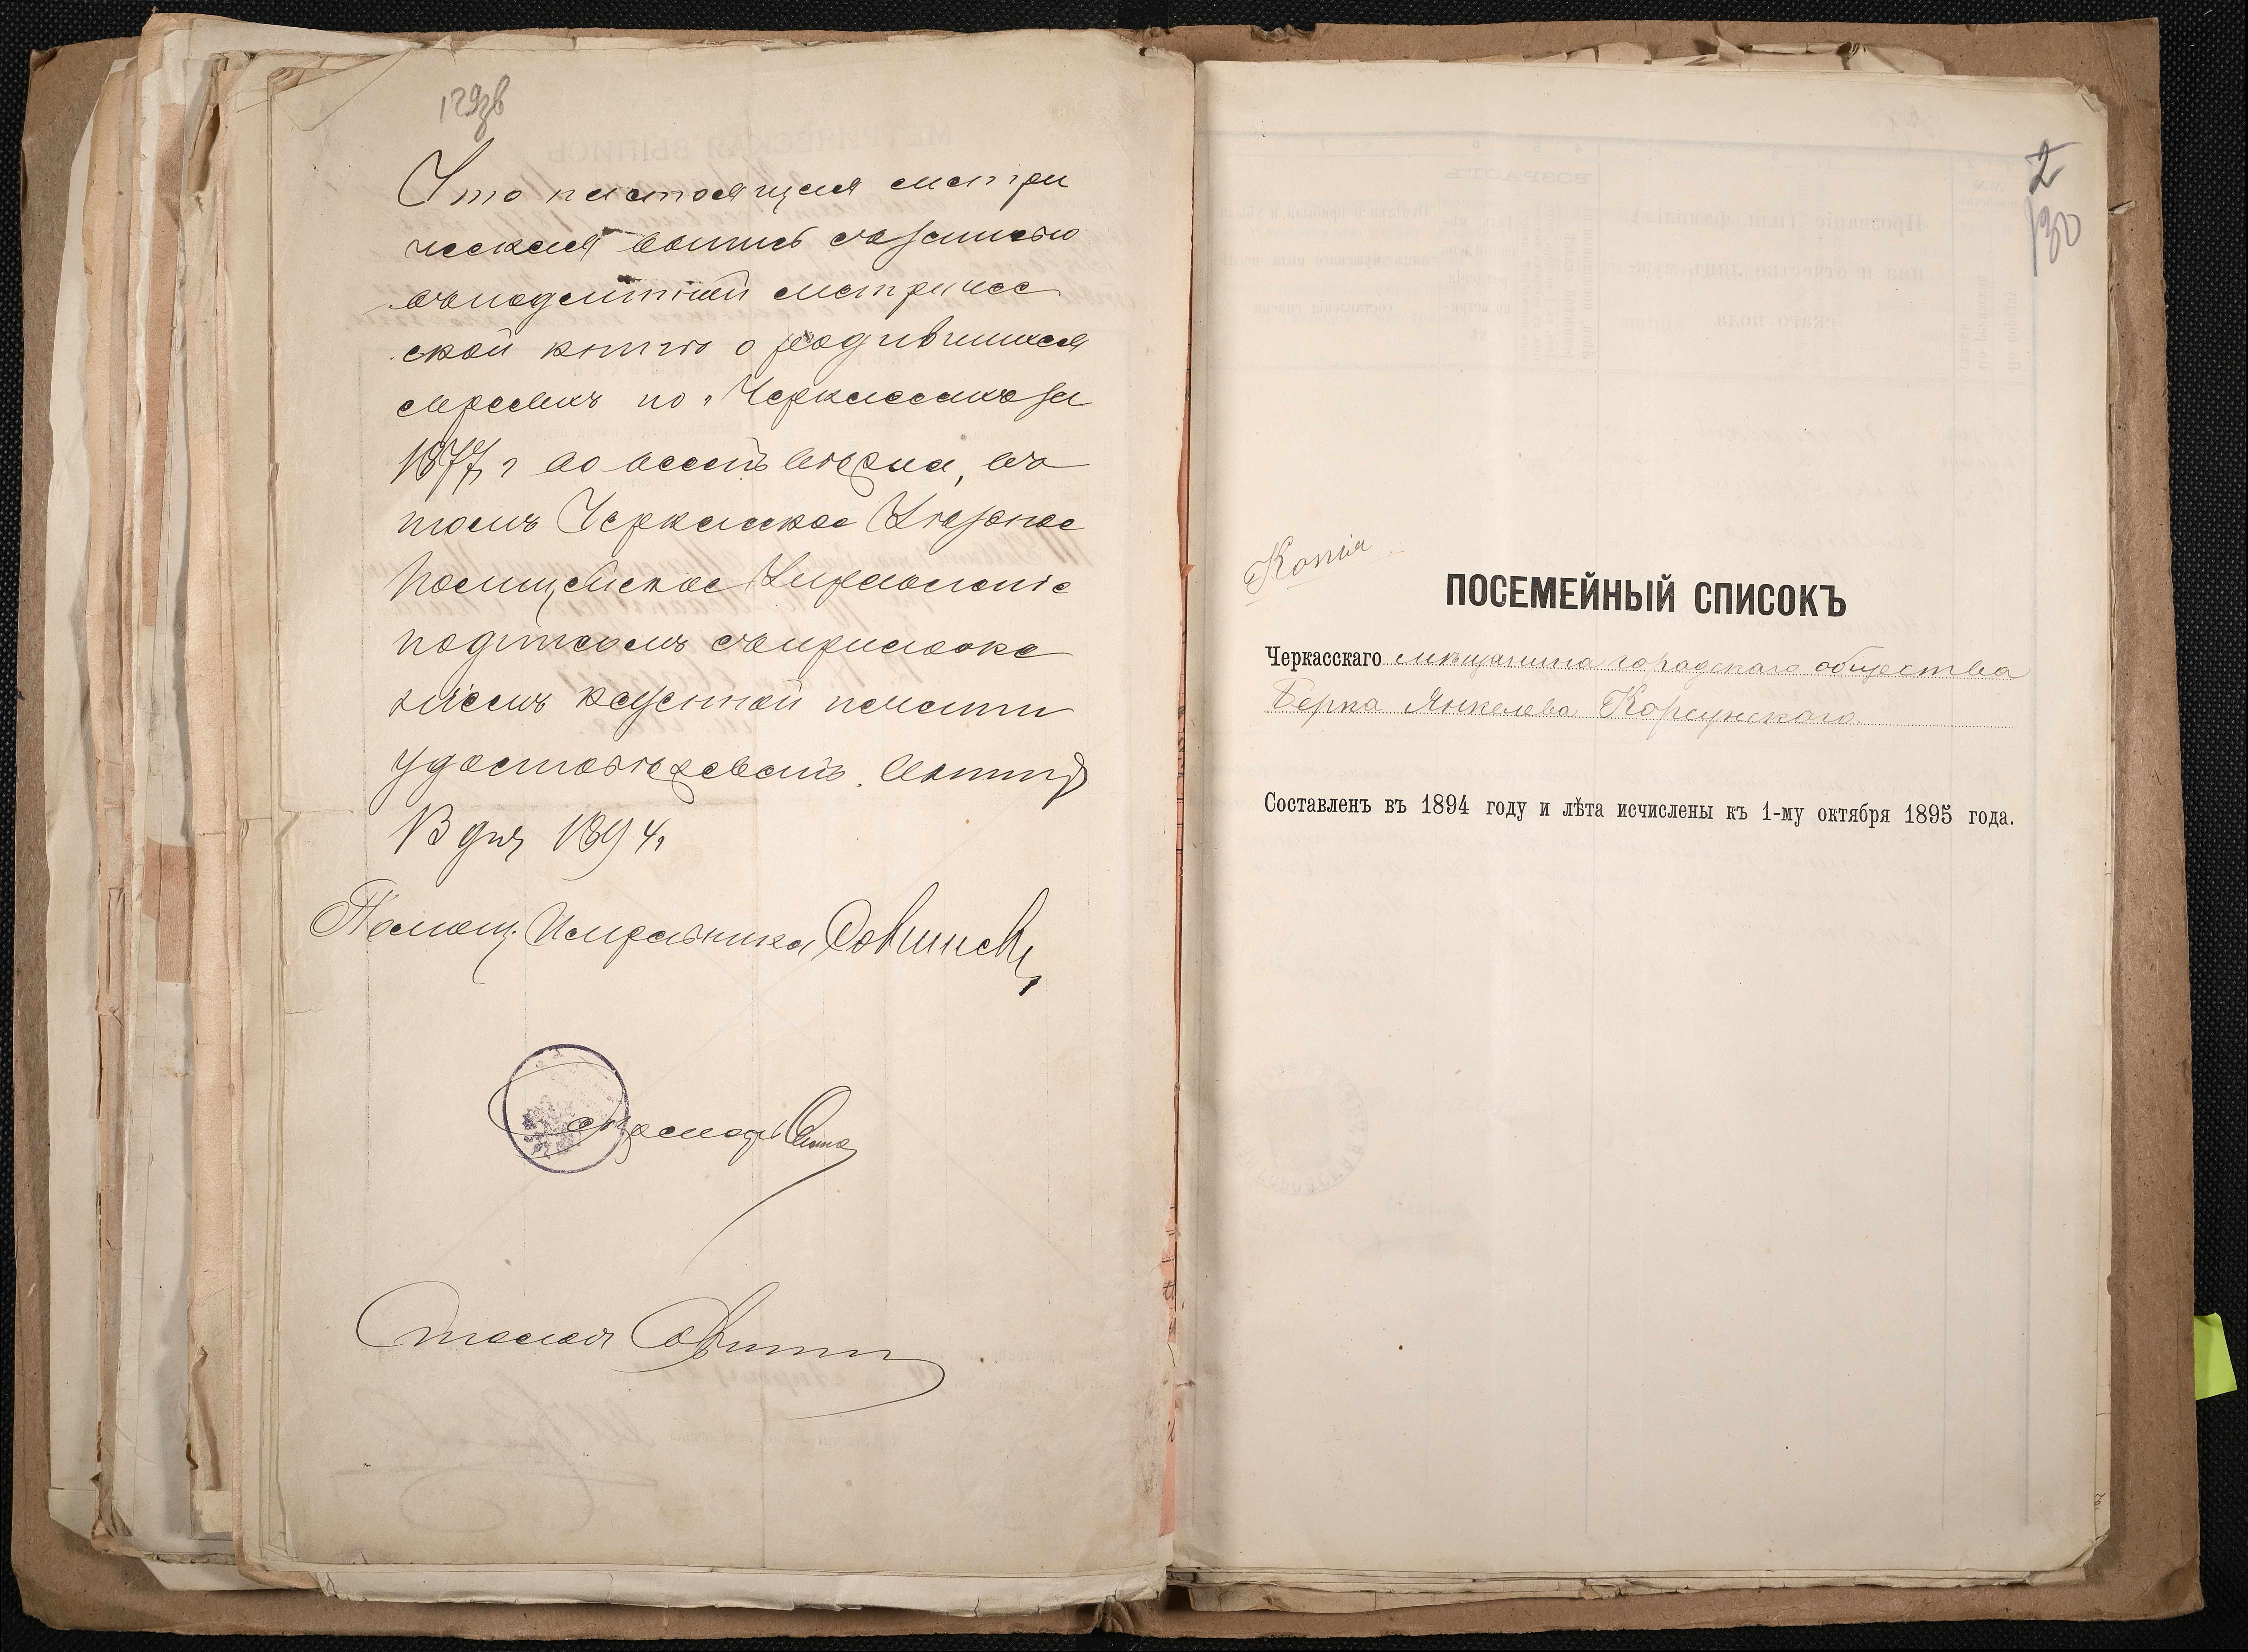 129зв
Что настоящая метри
ческая выпись съ записью
въ подлинной метриче
ской книгѣ о родившихся
евреяхъ по г. Черкассамъ за
1877 г во всемъ вѣрна, въ
томъ Черкасское Уѣздное
Полицейское Управленіе
подписомъ съ приложе
ніемъ казенной печати
удостовѣряетъ.
1894
Помощ. Исправника
Секретарь
2
130
Копія
ПОСЕМЕЙНЫЙ СПИСОКЪ
Черкасскаго мѣщанина городского общества
Берка Янкелева Корсунскаго.
Составленъ въ 1894 году и лѣта исчислены къ 1-му октября 1895 года.